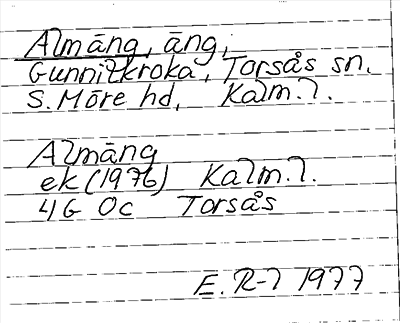 Almäng, äng,
Gunnilkroka, Torsås sn.
S. Möre hd, Kalm. l.
Almäng
ek (1976) Kalm. l.
4G 0c Torsås
E. R-l 1977